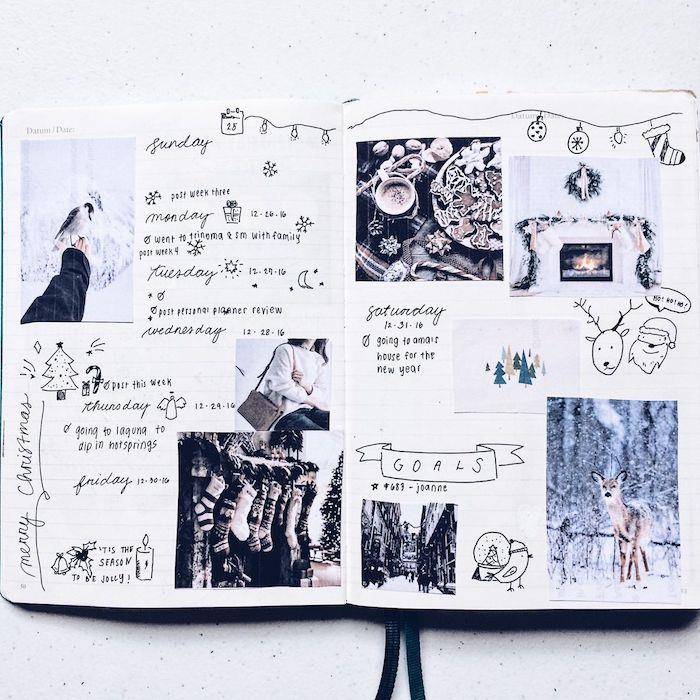 Datum / Date:
25
sunday
post week three
monday 12·26·16
went to trinoma & sm with family
post week 4
tuesday 12·27·16
post personal planner review
wednesday 12·28·16
post this week
thursday 12·29·16
going to laguna to
dip in hotsprings
friday 12·30·16
merry christmas
'TIS THE
SEASON
TO BE JOLLY!
Datum / Date:
HO! HO! HO!
saturday
12·31·16
going to ama's
house for the
new year
GOALS
- joanne